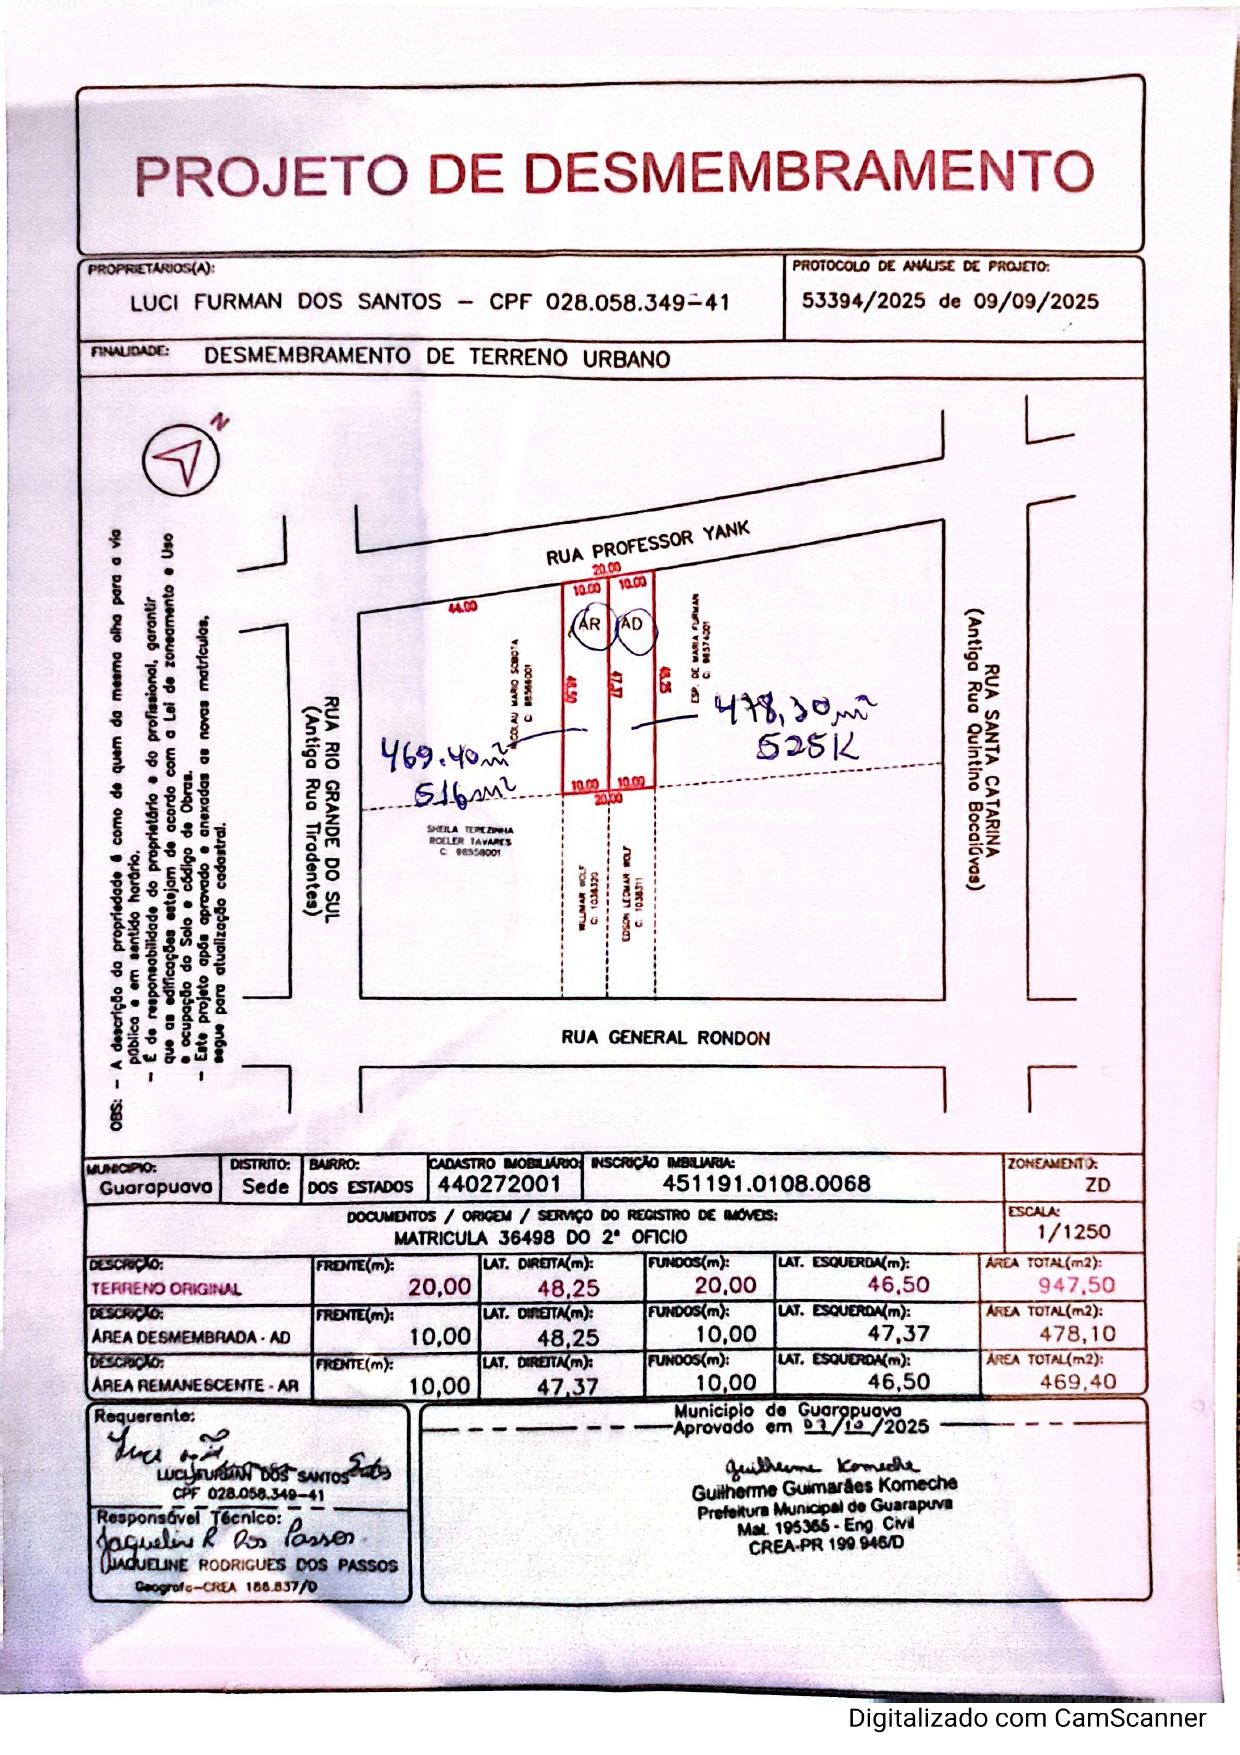 PROJETO DE DESMEMBRAMENTO
PROPRIETÁRIOS(A):
LUCI FURMAN DOS SANTOS - CPF 028.058.349-41
PROTOCOLO DE ANÁLISE DE PROJETO:
53394/2025 de 09/09/2025
FINALIDADE: DESMEMBRAMENTO DE TERRENO URBANO
N
OBS: - A descrição da propriedade é como de quem da mesma olha para a via
pública e em sentido horário.
- É de responsabilidade do proprietário e do profissional, garantir
que as edificações estejam de acordo com a Lei de zoneamento e Uso
e ocupação do Solo e código de Obras.
- Este projeto após aprovado e anexadas as novas matrículas,
segue para atualização cadastral.
RUA PROFESSOR YANK
20.00
10.00 10.00
44.00
AR AD
NICOLAU MARIO SOBOTA
C: 98566001
46.50
47.37
48.25
ESP. DE MARIA FURMAN
C: 98574001
478,30m²
525K
469.40m²
516m²
10.00 10.00
20.00
SHEILA TEREZINHA
ROELER TAVARES
C: 98558001
WILLIMAR WOLF
C: 1038320
EDSON LEOMAR WOLF
C: 1038311
RUA RIO GRANDE DO SUL
(Antiga Rua Tiradentes)
RUA SANTA CATARINA
(Antiga Rua Quintino Bocaiúvas)
RUA GENERAL RONDON
MUNICIPIO:
Guarapuava
DISTRITO:
Sede
BAIRRO:
DOS ESTADOS
CADASTRO IMOBILIÁRIO:
440272001
INSCRIÇÃO IMBILIARIA:
451191.0108.0068
ZONEAMENTO:
ZD
DOCUMENTOS / ORIGEM / SERVIÇO DO REGISTRO DE IMÓVEIS:
MATRICULA 36498 DO 2º OFICIO
ESCALA:
1/1250
DESCRIÇÃO: FRENTE(m): LAT. DIREITA(m): FUNDOS(m): LAT. ESQUERDA(m): ÁREA TOTAL(m2):
TERRENO ORIGINAL 20,00 48,25 20,00 46,50 947,50
DESCRIÇÃO: FRENTE(m): LAT. DIREITA(m): FUNDOS(m): LAT. ESQUERDA(m): ÁREA TOTAL(m2):
ÁREA DESMEMBRADA - AD 10,00 48,25 10,00 47,37 478,10
DESCRIÇÃO: FRENTE(m): LAT. DIREITA(m): FUNDOS(m): LAT. ESQUERDA(m): ÁREA TOTAL(m2):
ÁREA REMANESCENTE - AR 10,00 47,37 10,00 46,50 469,40
Requerente:
LUCI FURMAN DOS SANTOS
CPF 028.058.349-41
Responsável Técnico:
Jaqueline R dos Passos
JAQUELINE RODRIGUES DOS PASSOS
Geografa-CREA 188.837/D
Municipio de Guarapuava
Aprovado em 07/10/2025
Guilherme Komeche
Guilherme Guimarães Komeche
Prefeitura Municipal de Guarapuva
Mat. 195365 - Eng. Civil
CREA-PR 199.946/D
Digitalizado com CamScanner